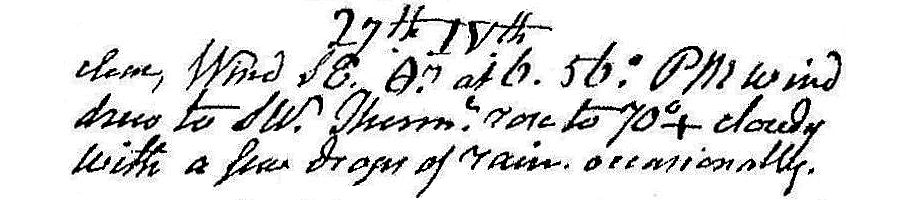 27th IVth
clear, Wind SE. at 6. 56° PM wind
drew to SW. Therm. rose to 70°+ cloudy
with a few drops of rain. occasionally.